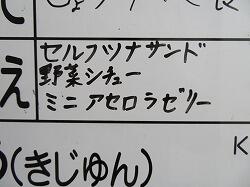 え
セルフツナサンド
野菜シチュー
ミニアセロラゼリー
(きじゅん)
K